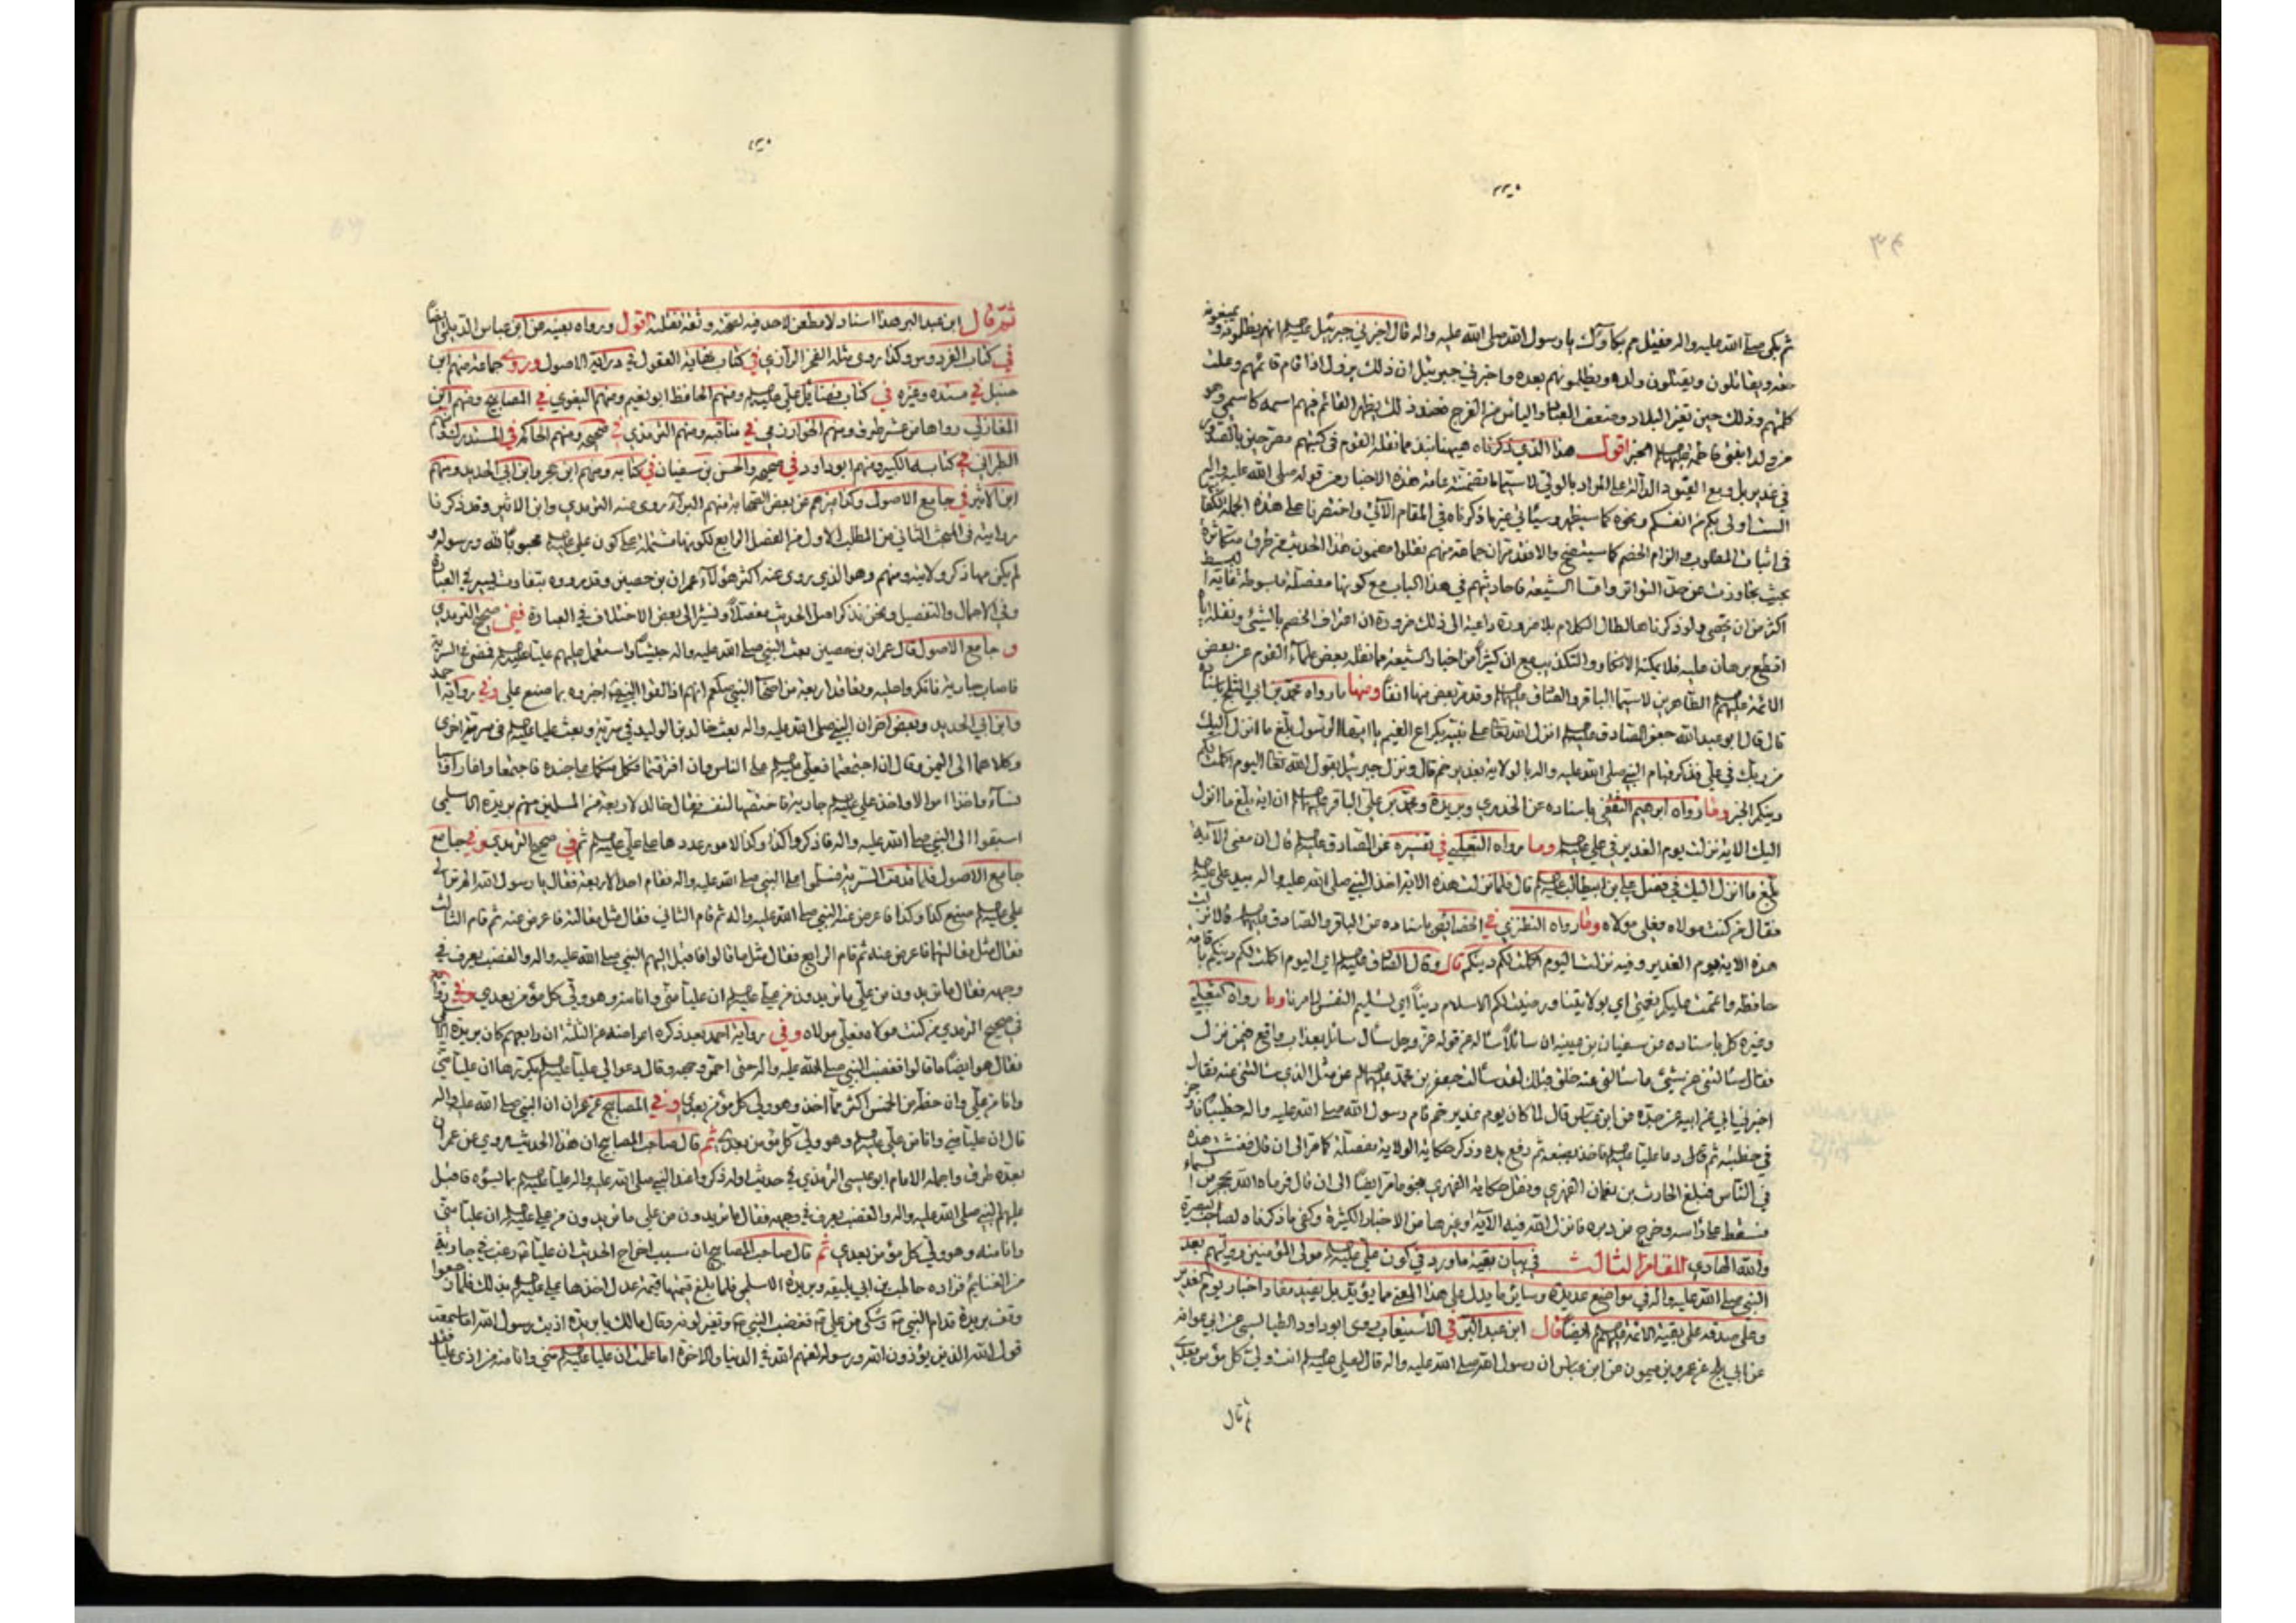 ثم بكى صلى الله عليه واله فقيل مم بكاؤك يا رسول الله صلى الله عليه واله قال اخبرني جبرئيل عليه السلم انهم يظلمونه ويمنعونه
حقه ويقاتلون ويقتلون ولده ويظلمونهم بعده واخبرني جبرئيل ان ذلك يزول اذا قام قائمهم وعلت
كلمتهم وذلك حين تغير البلاد وضعف العباد والياس من الفرج فعند ذلك يظهر القائم فيهم اسمه كاسمي وهو
من ولد ابنتي فاطمة عليها السلم الخبر اقول هذا الذي ذكرناه هيهنا نبذ مما نقله القوم في كتبهم مصرحين بالصدور
في غدير بل ومع القيود الدالة على المراد بالولي لا سيما ما تضمنته عامة هذه الاخبار من قوله صلى الله عليه واله
الست اولى بكم من انفسكم ونحوه كما سيظهر وسياتي غير ما ذكرناه في المقام الآتي واختصرنا على هذه الجملة
في اثبات المطلوب والزام الخصم كما سيتضح والا فقد مر ان جماعة منهم نقلوا مضمون هذا الحديث من طرق متكاثرة
بحيث تجاوزت عن حد التواتر واما الشيعة فاحاديثهم في هذا الباب مع كونها مفصلة مبسوطة غاية البسط
اكثر من ان تحصى ولو ذكرناها لطال الكلام بلا ضرورة داعية الى ذلك ضرورة ان اعتراف الخصم بالشيئ ونقله اياه
اقطع برهان عليه فلا يمكنه الانكار والتكذيب مع ان كثيرا من اخبار الشيعة مما نقله بعض علماء القوم عن بعض
الائمة عليهم السلم الطاهرين لا سيما الباقر والصادق عليهما السلم وقد مر بعض منها انفا ومنها ما رواه محمد بن ابي الثلج باسناده
قال قال ابو عبد الله جعفر الصادق عليه السلم انزل الله تعالى على نبيه بكراع الغميم يا ايها الرسول بلغ ما انزل اليك
من ربك في علي فذكر قيام النبي صلى الله عليه واله بالولاية بغدير خم قال ونزل جبرئيل بقول الله تعالى اليوم اكملت لكم
دينكم الخبر وما رواه ابرهيم الثقفي باسناده عن الخدري وبريدة ومحمد بن علي الباقر عليهما السلم ان اية بلغ ما انزل
اليك الاية نزلت يوم الغدير في علي عليه السلم وما رواه الثعلبي في تفسيره عن الصادق عليه السلم قال ان معنى الآية
بلغ ما انزل اليك في فضل علي بن ابيطالب عليه السلم قال فلما نزلت هذه الاية اخذ النبي صلى الله عليه واله بيد علي عليه السلم
فقال من كنت مولاه فعلي مولاه وما رواه النطنزي في الخصائص باسناده عن الباقر والصادق عليهما السلم قالا نزلت
هذه الاية يوم الغدير وفيه نزلت اليوم اكملت لكم دينكم قال وقال الصادق عليه السلم اي اليوم اكملت لكم دينكم باقامة
حافظه واتممت عليكم نعمتي اي بولايتنا ورضيت لكم الاسلام دينا اي تسليم النفس لامرنا وما رواه الثعلبي
وغيره كل باسناده عن سفيان بن عيينة ان سائلا سأله عن قوله عز وجل سأل سائل بعذاب واقع فيمن نزل
فقال سألتني عن شيئ ما سألني عنه خلق قبلك لقد سألت جعفر بن محمد عليهما السلم عن مثل الذي سألتني عنه فقال
اخبرني ابي عن ابيه عن جده عن ابن عباس قال لما كان يوم غدير خم قام رسول الله صلى الله عليه واله خطيبا
في خطبته ثم قال دعا عليا عليه السلم فاخذ بضبعه ثم رفع يده وذكر حكاية الولاية مفصلة كما مر الى ان قال ففشت هذه
في الناس فبلغ الحارث بن نعمان الفهري ونقل حكاية الفهري بنحو ما مر ايضا الى ان قال فرماه الله بحجر من السماء
فسقط على راسه وخرج من دبره فانزل الله فيه الآية وغيرها من الاخبار الكثيرة وكفى ما ذكرناه لصاحب البصيرة
والله الهادي المقام الثالث في بيان بقية ما ورد في كون علي عليه السلم مولى المؤمنين ووليهم بعد
النبي صلى الله عليه واله في مواضع عديدة وسائر ما يدل على هذا المعنى مما يؤيد بل يفيد مفاد اخبار يوم الغدير
وعلى صدقه على بقية الائمة عليهم السلم ايضا قال ابن عبد البر في الاستيعاب روى ابو داود الطيالسي عن ابي عوانة
عن ابي بلج عن عمرو بن ميمون عن ابن عباس ان رسول الله صلى الله عليه واله قال لعلي عليه السلم انت ولي كل مؤمن بعدي
ثم قال
ثم قال ابن عبد البر هذا اسناد لا مطعن لاحد فيه لصحته وثقة نقلته اقول ورواه بعينه عن ابن عباس الديلمي ايضا
في كتاب الفردوس وكذا روى مثله الفخر الرازي في كتاب نهاية العقول في دراية الاصول وروى جماعة منهم ابن
حنبل في مسنده وغيره في كتاب فضائل علي عليه السلم ومنهم الحافظ ابو نعيم ومنهم البغوي في المصابيح ومنهم ابن
المغازلي رواها من عشر طرق ومنهم الخوارزمي في مناقبه ومنهم الترمذي في صحيحه ومنهم الحاكم في المستدرك ومنهم
الطبراني في كتابه الكبير ومنهم ابو داود في صحيحه والحسن بن سفيان في كتابه ومنهم ابن حجر وابن ابي الحديد ومنهم
ابن الاثير في جامع الاصول وكذا غيرهم عن بعض الصحابة منهم البراء روى عنه الترمذي وابن الاثير وقد ذكرنا
روايته في المبحث الثاني من المطلب الاول من الفصل الرابع لكونها مشتملة على كون علي عليه السلم محبوبا لله ورسوله و
لم يكن فيها ذكر ولايته ومنهم وهو الذي روى عنه اكثر هؤلاء عمران بن حصين وقد رووه بتفاوت يسير في العبارة
وفي الاجمال والتفصيل ونحن نذكر اصل الحديث مفصلا ونشير الى بعض الاختلاف في العبارة ففي صحيح الترمذي
و جامع الاصول قال عمران بن حصين بعث النبي صلى الله عليه واله جيشا واستعمل عليهم عليا عليه السلم فمضى في السرية
فاصاب جارية فانكروا عليه وتعاقد اربعة من اصحاب النبي صلعم انهم اذا لقوا النبي اخبروه بما صنع علي وفي رواية احمد
وابن ابي الحديد وبعض اخر ان النبي صلى الله عليه واله بعث خالد بن الوليد في سرية وبعث عليا عليه السلم في سرية اخرى
وكلاهما الى اليمن وقال ان اجتمعتما فعلي عليه السلم على الناس وان افترقتما فكل منكما على جنده فاجتمعا واغارا وسبيا
نساء واخذا اموالا واخذ علي عليه السلم جارية فاختصها لنفسه فقال خالد لاربعة من المسلمين منهم بريدة الاسلمي
اسبقوا الى النبي صلى الله عليه واله فاذكروا كذا وكذا لامور عددها على علي عليه السلم ثم في صحيح الترمذي وفي جامع
جامع الاصول فلما قدمت السرية فسلموا على النبي صلى الله عليه واله فقام احد الاربعة فقال يا رسول الله الم تر الى
علي عليه السلم صنع كذا وكذا فاعرض عنه النبي صلى الله عليه واله ثم قام الثاني فقال مثل مقالته فاعرض عنه ثم قام الثالث
فقال مثل مقالتهما فاعرض عنه ثم قام الرابع فقال مثل ما قالوا فاقبل اليهم النبي صلى الله عليه واله والغضب يعرف في
وجهه فقال ما تريدون من علي ما تريدون من علي عليه السلم ان عليا مني وانا منه وهو ولي كل مؤمن بعدي وفي رواية
في صحيح الترمذي من كنت مولاه فعلي مولاه وفي رواية احمد بعد ذكره اعراضه عن الثلثة ان رابعهم كان بريدة
فقال هو ايضا ما قالوا فغضب النبي صلى الله عليه واله حتى احمر وجهه وقال دعوا لي عليا عليه السلم يكررها ان عليا مني
وانا من علي وان حظه من الخمس اكثر مما اخذ وهو ولي كل مؤمن بعدي وفي المصابيح عن عمران ان النبي صلى الله عليه واله
قال ان عليا مني وانا من علي عليه السلم وهو ولي كل مؤمن بعدي ثم قال صاحب المصابيح ان هذا الحديث مروي عن عمران
بعدة طرق واجمله الامام ابو عيسى الترمذي في حديث اوله ذكروا عند النبي صلى الله عليه واله عليا عليه السلم بما يسؤه فاقبل
عليهم النبي صلى الله عليه واله والغضب يعرف في وجهه فقال ما تريدون من علي ما تريدون من علي عليه السلم ان عليا مني
وانا منه وهو ولي كل مؤمن بعدي ثم قال صاحب المصابيح ان سبب اخراج الحديث ان عليا رغب في جارية
من الغنايم فزاده حاطب بن ابي بلتعة وبريدة الاسلمي فلما بلغ قيمتها قيمة عدل اخذها علي عليه السلم بذلك فلما رجعوا
وقف بريدة قدام النبي وشكى من علي فغضب النبي وتغير لونه وقال مالك يا بريدة اذيت رسول الله اما سمعت
قول الله الذين يؤذون الله ورسوله لعنهم الله في الدنيا والاخرة اما علمت ان عليا عليه السلم مني وانا منه من اذى عليا فقد